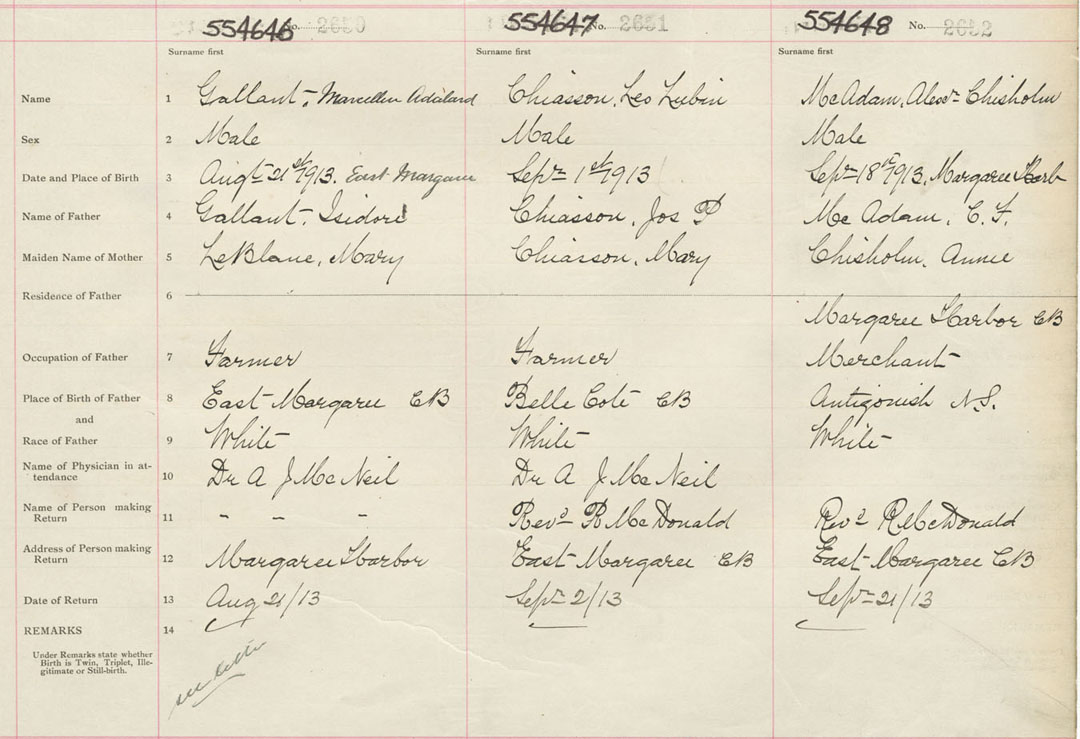 554646 No. 2630 554647 No. 2631 554648 No. 2632
Surname first Surname first Surname first
Name 1 Gallant, Marcellin Adelard Chiasson, Leo Lubin McAdam, Alexr Chisholm
Sex 2 Male Male Male
Date and Place of Birth 3 Augt 21st 1913. East Margaree Sepr 1st 1913 Sepr 18th 1913, Margaree Harb
Name of Father 4 Gallant, Isidore Chiasson, Jos P Mc Adam, C. F.
Maiden Name of Mother 5 LeBlanc, Mary Chiasson, Mary Chisholm, Annie
Residence of Father 6 Margaree Harbor CB
Occupation of Father 7 Farmer Farmer Merchant
Place of Birth of Father 8 East Margaree CB Belle Cote CB Antigonish N.S.
and
Race of Father 9 White White White
Name of Physician in at-
tendance 10 Dr A J McNeil Dr A J McNeil
Name of Person making
Return 11 - - - Revd R McDonald Revd R McDonald
Address of Person making
Return 12 Margaree Harbor East Margaree CB East Margaree CB
Date of Return 13 Aug 21/13 Sepr 2/13 Sepr 21/13
REMARKS 14
Under Remarks state whether
Birth is Twin, Triplet, Ille-
gitimate or Still-birth.
see